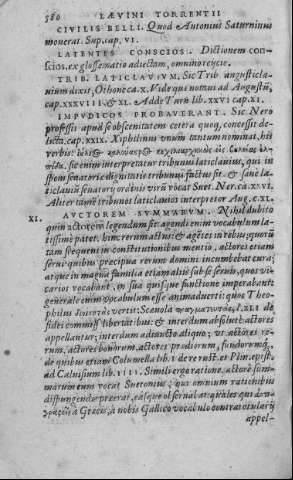 580 LÆVINI TORRENTII
CIVILIS BELLI. Quod Antonius Saturninus
mouerat. Sup. cap. VI.
LATENTES CONSCIOS. Dictionem con-
scios, ex glossemate adiectam, omnino reijcie.
TRIB. LATICLAVIVM. Sic Trib. angusticla-
uium dixit, Othone ca. X. Vide quæ notaui ad Augustũ,
cap. XXXVIII. & XL. Adde Turn. lib. XXVI. cap. XI.
IMPVDICOS PROBAVERANT. Sic Nero
professis apud se obscœnitatem cetera quoq, concessit de-
licta, cap. XXIX. Xiphilinus vnum tantum nominat, his
verbis:
sic enim interpretatur tribunum laticlauium, qui in
spem senatoriæ dignitatis tribunus factus sit. & sanè la-
ticlauiũ senatorij ordinis virũ vocat Suet. Ner. ca. XXVI.
Aliter tamẽ tribunos laticlauios interpretor Aug. c. XL.
XI. AVCTOREM SVMMARVM. Nihil dubito
quin actorem legendum sit. agendi enim vocabulum la-
tissimè patet. hinc rerum actus: & agĕtes in rebus: quorũ
tam frequens in constitutionibus mentio, actores etiam
serui: quibus præcipua rerum domini incumbebat cura;
atque in magna familia etiam alij sub se seruis, quos vi-
carios vocabant, in sua quisque functione imperabant;
generale enim vocabulum esse animaduerti: quos Theo-
philus vertit: Scæuola L. XLI. de
fideicommiss. libertatibus: & interdum absolutè actores
appellantur; interdum adiuncto aliquo; vt actores re-
rum, actores bonorum, actores prædiorum, fundorumq́,
de quibus etiam Columella lib. I. de re rust. et Plin. epist.
ad Caluisium lib. IIII. Simili ergo ratione, actorẽ sum-
marum eum vocat Suetonius, qui omnium rationibus
dispungendis præerat, easque obseruabat: quales qui
à Græcis, à nobis Gallico vocabulo contrarotularij
appel-